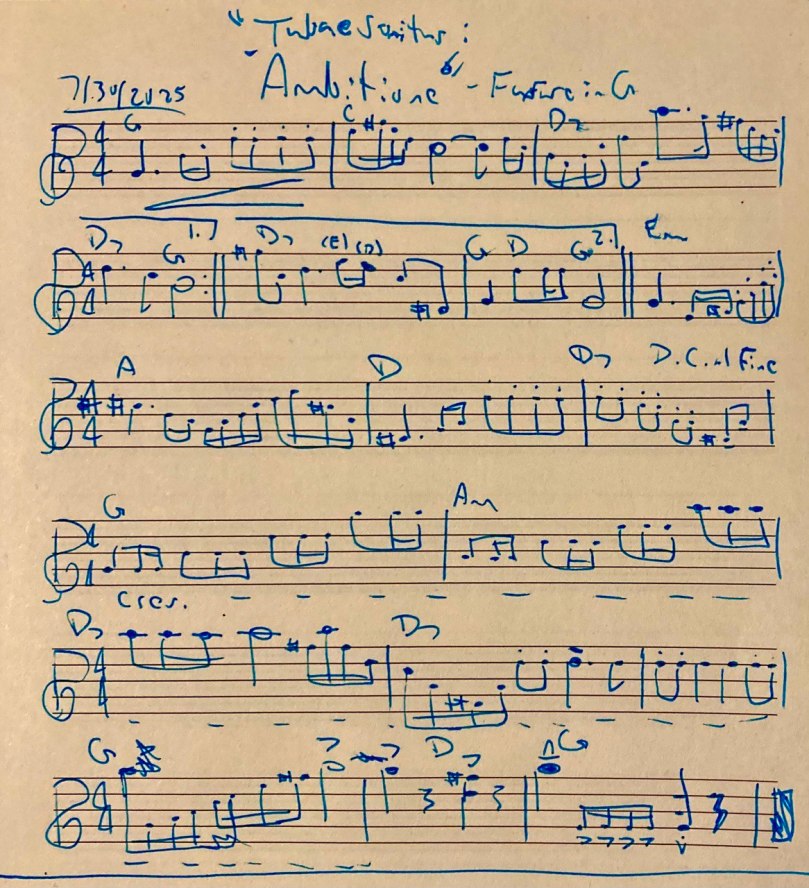 "Tubae Sonitus:
"Ambitione" - Fanfare in G
7/30/2025
G C D7
D7 G 1. D7 (E) (D) G D G 2. Em
A D D7 D.C. al Fine
G Am
Cres.
D7 D7
G D7 G